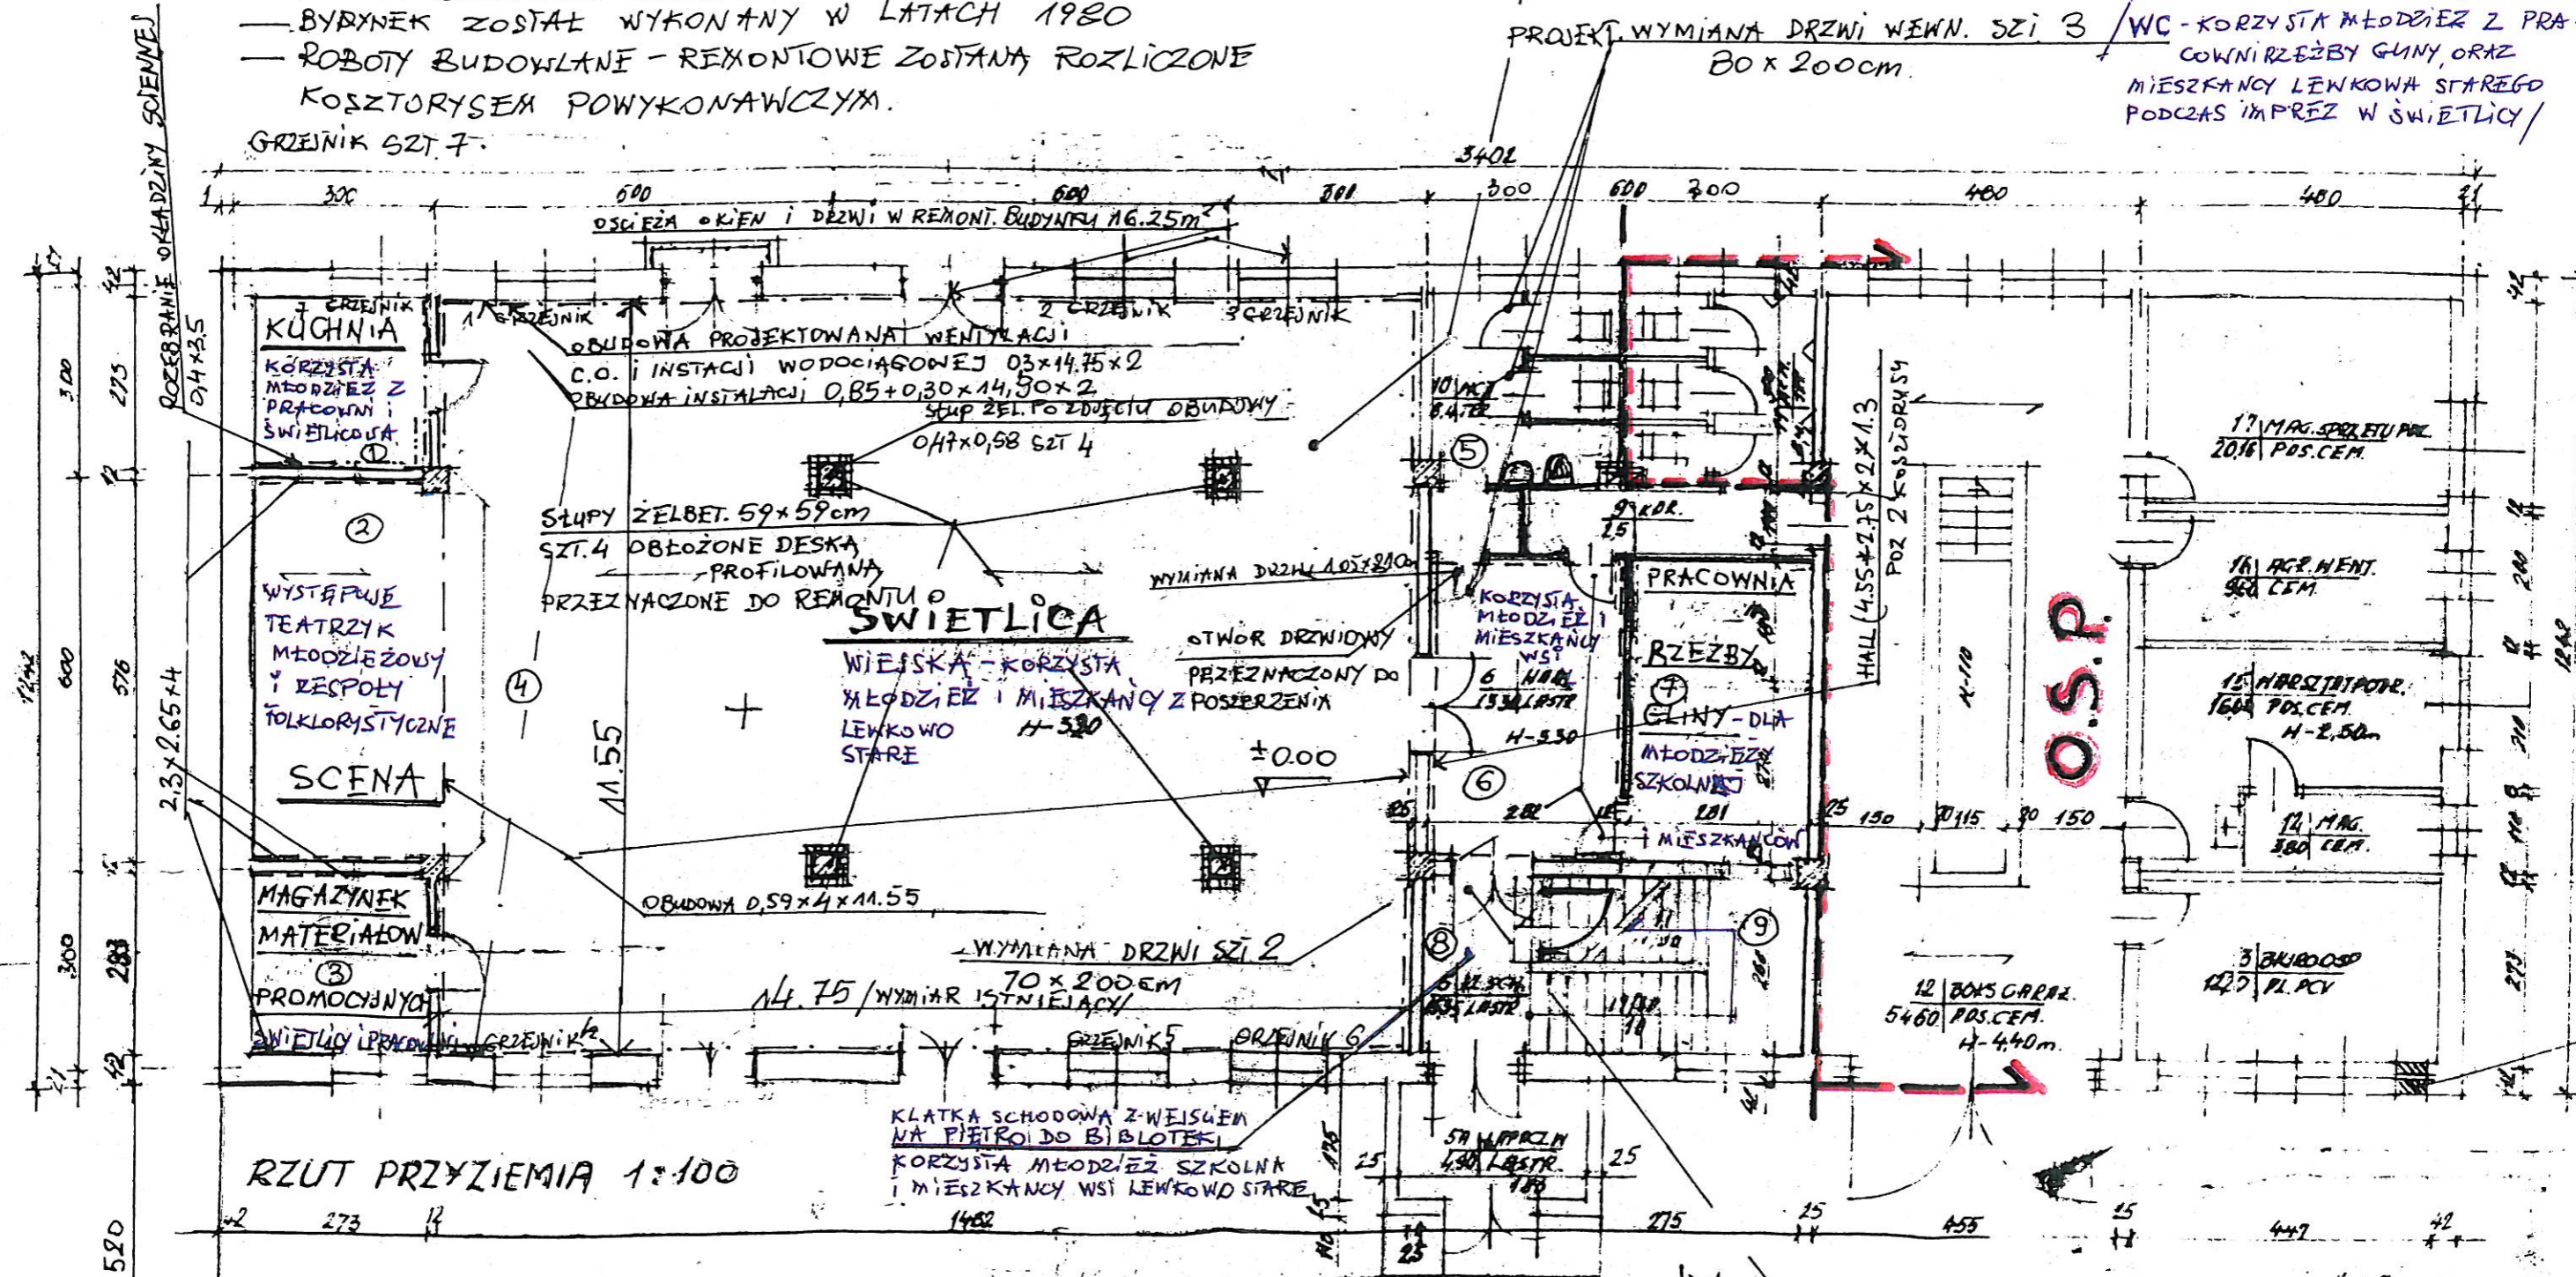 — BYDYNEK ZOSTAŁ WYKONANY W LATACH 1980
— ROBOTY BUDOWLANE - REMONTOWE ZOSTANĄ ROZLICZONE
KOSZTORYSEM POWYKONAWCZYM.
GRZEJNIK SZT. 7.
PROJEKT. WYMIANA DRZWI WEWN. SZT. 3
80 x 200cm.
/WC - KORZYSTA MŁODZIEŻ Z PRA
COWNI RZEŹBY GLINY, ORAZ
MIESZKAŃCY LEWKOWA STAREGO
PODCZAS IMPREZ W ŚWIETLICY/
ROZEBRANIE OKŁADZINY ŚCIENNEJ
0,4 x 3,5
3402
300 600 600 300 300 600 300 480 480 21
OŚCIEŻA OKIEN I DRZWI W REMONT. BUDYNKU 16.25m²
7 GRZEJNIK
1 GRZEJNIK
2 GRZEJNIK
3 GRZEJNIK
KUCHNIA
KORZYSTA
MŁODZIEŻ Z
PRACOWNI I
ŚWIETLICOWA
1
OBUDOWA PROJEKTOWANA WENTYLACJI
C.O. I INSTACJI WODOCIĄGOWEJ 03x14,75x2
OBUDOWA INSTALACJI 0,85+0,30x14,90x2
SŁUP ŻEL. PO ZDJĘCIU OBUDOWY
0,47x0,58 SZT 4
SŁUPY ŻELBET. 59x59cm
SZT. 4 OBŁOŻONE DESKĄ
PROFILOWANĄ
PRZEZNACZONE DO REMONTU
2
WYSTĘPUJE
TEATRZYK
MŁODZIEŻOWY
I ZESPOŁY
FOLKLORYSTYCZNE
SCENA
4
11.55
2,3x2.65x4
ŚWIETLICA
WIEJSKA - KORZYSTA
MŁODZIEŻ I MIESZKAŃCY Z
LEWKOWO
STARE
H-320
±0.00
WYMIANA DRZWI 1.05x210
OTWÓR DRZWIOWY
PRZEZNACZONY DO
POSZERZENIA
5
9 KOR.
KORZYSTA
MŁODZIEŻ I
MIESZKAŃCY
WSI
6 HALL
H-330
6
PRACOWNIA
RZEŹBY
7
GLINY - DLA
MŁODZIEŻY
SZKOLNEJ
I MIESZKAŃCÓW
HALL (4.55+2.75)x2x1.3
POZ 2 KOSZTORYSU
O.S.P.
17 MAG. SPRZĘTU POŻ.
2016 POS.CEM.
16 AGR. WENT.
CEM.
15 WARSZTAT PODR.
POS.CEM.
H-2,50m
MAG.
380 CEM.
BIURO OSP
PL. PCV
12 BOKS GARAŻ.
5460 POS.CEM.
H-4,40m.
25 282 12 281 25 150 115 150
MAGAZYNEK
MATERIAŁÓW
3
PROMOCYJNYCH
ŚWIETLICY I PRACOWNI
OBUDOWA 0,59x4x11.55
WYMIANA DRZWI SZT 2
70 x 200 cm
14.75 /WYMIAR ISTNIEJĄCY/
GRZEJNIK 4
GRZEJNIK 5
GRZEJNIK 6
8
9
KLATKA SCHODOWA Z WEJŚCIEM
NA PIĘTRO DO BIBLOTEKI
KORZYSTA MŁODZIEŻ SZKOLNA
I MIESZKAŃCY WSI LEWKOWO STARE
RZUT PRZYZIEMIA 1:100
25 25
273 12 1482 275 25 455 25 447 42
520